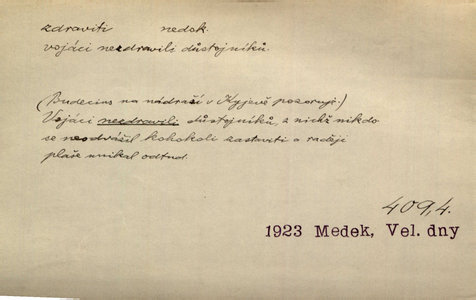 zdraviti nedok.
vojáci nezdravili důstojníků.
(Budecius na nádraží v Kyjevě pozoruje:)
Vojáci nezdravili důstojníků, z nichž nikdo
se neodvážil kohokoli zastaviti a raději
plaše unikal odtud.
409,4.
1923 Medek, Vel. dny